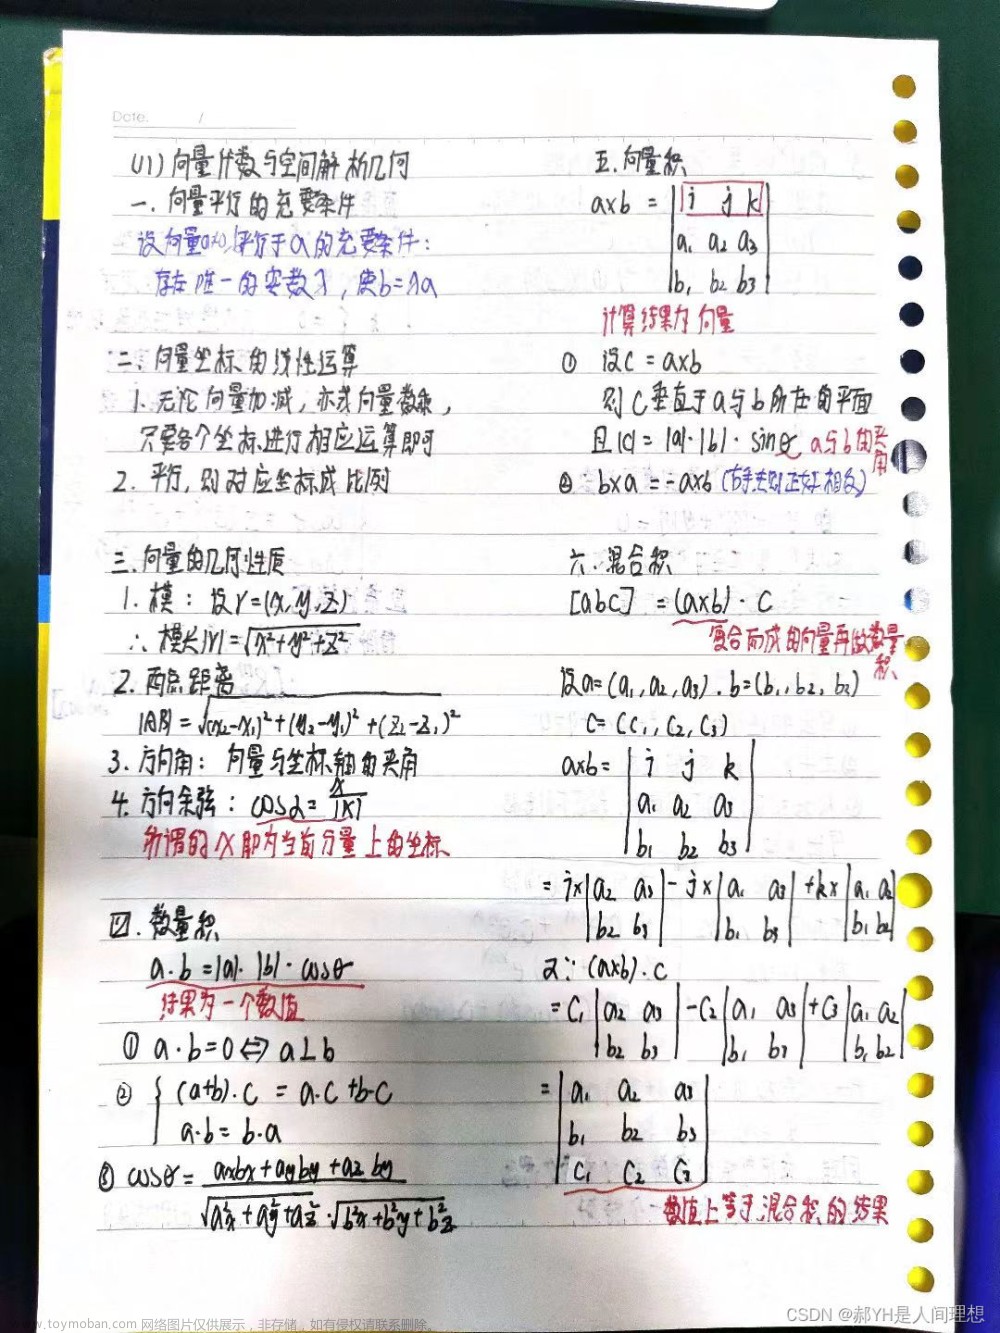 Date. /
(11) 向量代数与空间解析几何
一. 向量平行的充要条件
设向量a≠0, b平行于a的充要条件:
存在唯一的实数λ, 使b=λa
二. 向量坐标的线性运算
1. 无论向量加减, 亦或向量数乘,
只要各个坐标进行相应运算即可
2. 平行, 则对应坐标成比例
三. 向量的几何性质
1. 模: 设r=(x,y,z)
∴ 模长|r|=√(x²+y²+z²)
2. 两点距离
|AB|=√((x₂-x₁)²+(y₂-y₁)²+(z₂-z₁)²)
3. 方向角: 向量与坐标轴的夹角
4. 方向余弦: cosα=x/|r|
所谓的x即为当前分量上的坐标
四. 数量积
a·b=|a|·|b|·cosθ
结果为一个数值
① a·b=0⇔a⊥b
② { (a+b)·c = a·c+b·c
a·b=b·a
③ cosθ= (axbx+ayby+az by)/(√(a²x+a²y+a²z)·√(b²x+b²y+b²z))
五. 向量积
a×b = | i j k |
| a₁ a₂ a₃ |
| b₁ b₂ b₃ |
计算结果为向量
① 设c=a×b
则c垂直于a与b所在的平面
且|c|=|a|·|b|·sinθ a与b的夹角
② b×a=-a×b (右手法则正好相反)
六. 混合积
[abc] =(a×b)·c
复合而成的向量再做数量积
设a=(a₁,a₂,a₃). b=(b₁,b₂,b₃)
c=(c₁,c₂,c₃)
a×b= | i j k |
| a₁ a₂ a₃ |
| b₁ b₂ b₃ |
= i×|a₂ a₃| - j×|a₁ a₃| + k×|a₁ a₂|
|b₂ b₃| |b₁ b₃| |b₁ b₂|
又∵ (a×b)·c
= c₁|a₂ a₃| - c₂|a₁ a₃| + c₃|a₁ a₂|
|b₂ b₃| |b₁ b₃| |b₁ b₂|
= | a₁ a₂ a₃ |
| b₁ b₂ b₃ |
| c₁ c₂ c₃ |
数值上等于混合积的结果
www.toymoban.com 网络图片仅供展示, 非存储, 如有侵权请联系删除。
CSDN @郝YH是人间理想